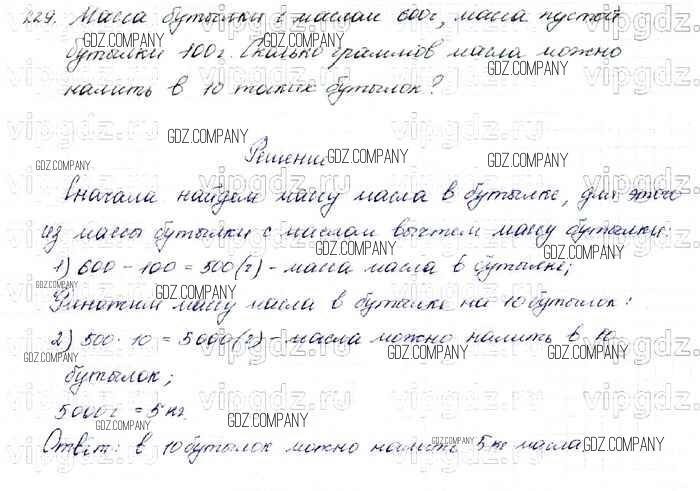 229. Масса бутылки с маслом 600г, масса пустой
бутылки 100г. Сколько граммов масла можно
налить в 10 таких бутылок?
Решение
Сначала найдем массу масла в бутылке, для этого
из массы бутылки с маслом вычтем массу бутылки:
1) 600 - 100 = 500(г) - масса масла в бутылке;
Умножим массу масла в бутылке на 10 бутылок:
2) 500 · 10 = 5000(г) - масла можно налить в 10
бутылок;
5000г = 5 кг.
Ответ: в 10 бутылок можно налить 5 кг масла.
GDZ.COMPANY
vipgdz.ru